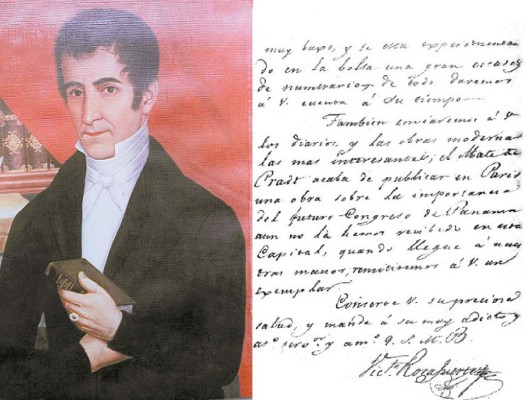 muy baxo, y se esta experimentan
do en la bolsa una gran escasez
de numerario; de todo daremos
á V. cuenta á su tiempo
Tambien enviaremos á V
los diarios, y las obras modernas
las mas interesantes; el Mr. de
Pradt acaba de publicar en Paris
una obra sobre la importancia
del futuro Congreso de Panama
aun no la hemos recibido en esta
Capital, quando llegue á nues
tras manos, remitiremos á V. un
exemplar.
Conserve V. su preciosa
salud, y mande á su muy adicto y
y am.º Q. S. M. B.
Vict.e Rocafuerte